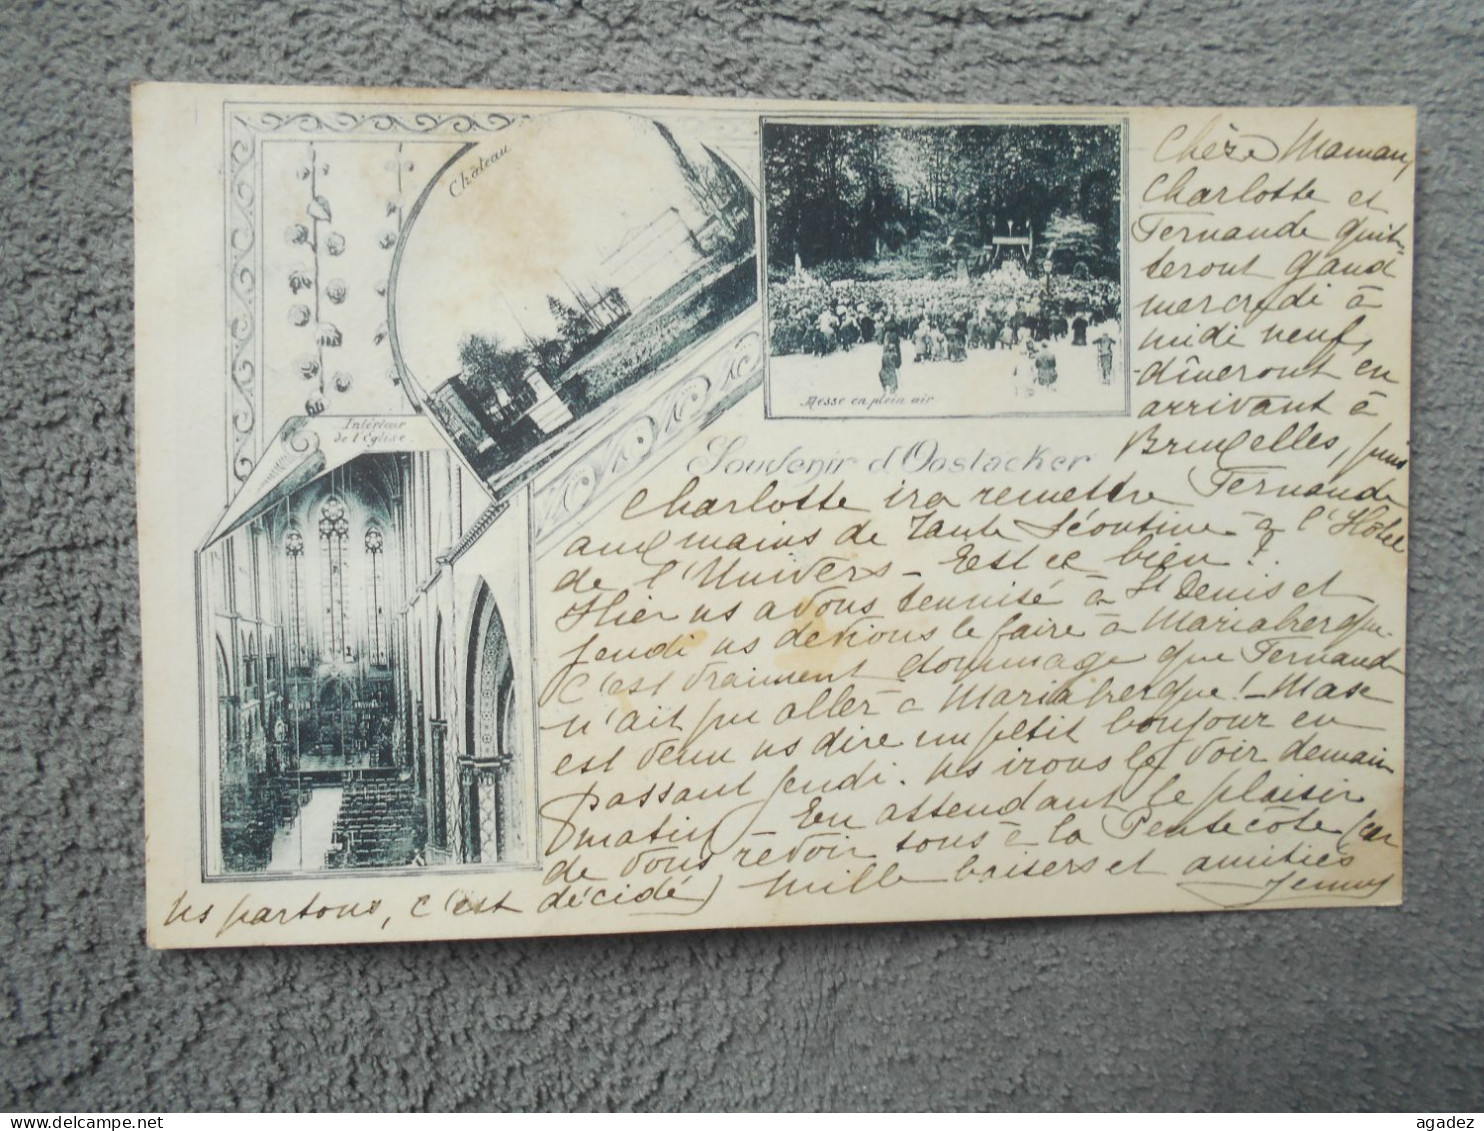 Château
Messe en plein air
Intérieur
de l'Eglise.
Souvenir d'Oostacker
Chère Maman,
Charlotte et
Fernande quit-
teront Gand
mercredi à
midi neuf,
dîneront en
arrivant à
Bruxelles, puis
Charlotte ira remettre Fernande
aux mains de Tante Léontine à l'Hôtel
de l'Univers - Est ce bien ?
Hier ns avons tennisé à St Denis et
jeudi ns devions le faire à Mariakerque.
C'est vraiment dommage que Fernande
n'ait pu aller à Mariakerque ! - Max
est venu ns dire un petit bonjour en
passant jeudi. Ns irons le voir demain
matin - En attendant le plaisir
de vous revoir tous à la Pentecôte (car
ns partons, c'est décidé) Mille baisers et amitiés
Jenny
www.delcampe.net
agadez